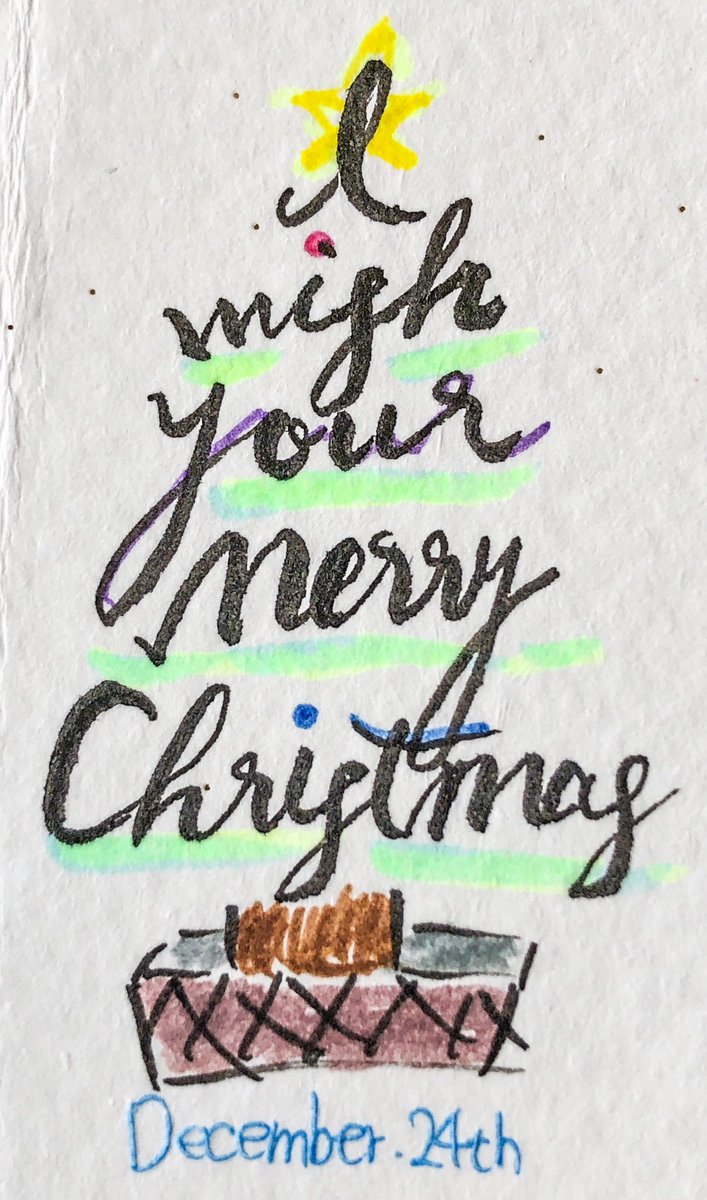 I
wish
your
Merry
Christmas
December.24th